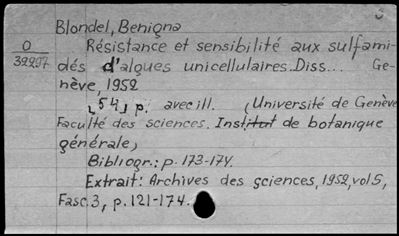 Blondel, Benigna
O
39297
Résistance et sensibilité aux sulfami-
dés d'algues unicellulaires. Diss... Ge-
nève, 1952
[54] p. avec ill. (Université de Genève
Faculté des sciences. Institut de botanique
générale)
Bibliogr.: p. 173-174.
Extrait: Archives des sciences, 1952, vol 5,
Fasc. 3, p. 121-174.